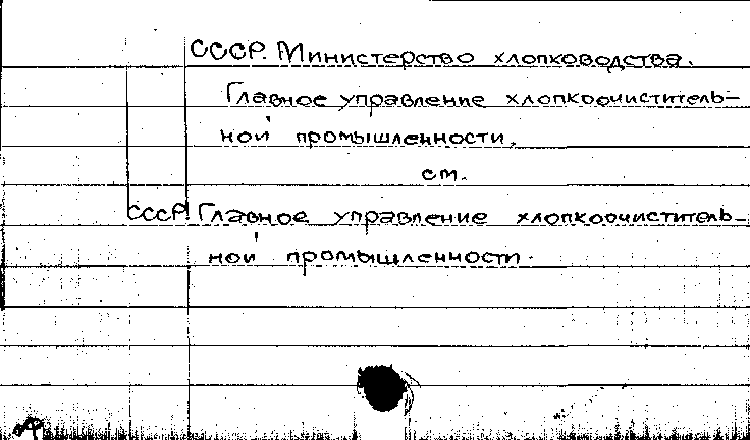 СССР. Министерство хлопководства.
Главное управление хлопкоочиститель-
ной промышленности.
см.
СССР. Главное управление хлопкоочиститель-
ной промышленности.